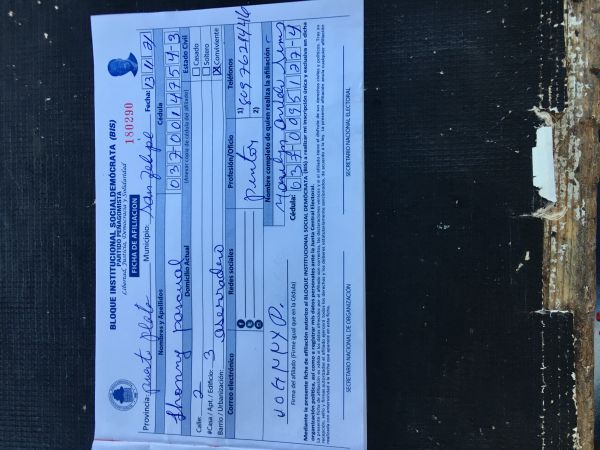 BLOQUE INSTITUCIONAL SOCIALDEMÓCRATA (BIS)
PARTIDO PEÑAGOMISTA
Libertad, Justicia, Democracia y Solidaridad
FICHA DE AFILIACIÓN
180290
Provincia: puerto plata Municipio: San Felipe Fecha: 13/01/21
Nombres y Apellidos Cédula
Jhonny pascual 037-0014754-3
(Anexar copia de cédula del afiliado)
Domicilio Actual Estado Civil
Calle: 2 Casado
#Casa / Apt. / Edificio: 3 Soltero
Barrio / Urbanización: aserradero X Conviviente
Correo electrónico Redes sociales Profesión/Oficio Teléfonos
pintor
1) 809 762 1441
2)
Nombre completo de quien realiza la afiliación
JOHNNY P.
Firma del afiliado (Firme igual que en la Cédula)
Cédula: 037-0095127-4
Mediante la presente ficha de afiliación autorizo al BLOQUE INSTITUCIONAL SOCIALDEMÓCRATA (BIS) a realizar mi inscripción única y exclusiva en dicha
organización política, así como a registrar mis datos personales ante la Junta Central Electoral.
SECRETARIO NACIONAL DE ORGANIZACIÓN SECRETARIO NACIONAL ELECTORAL